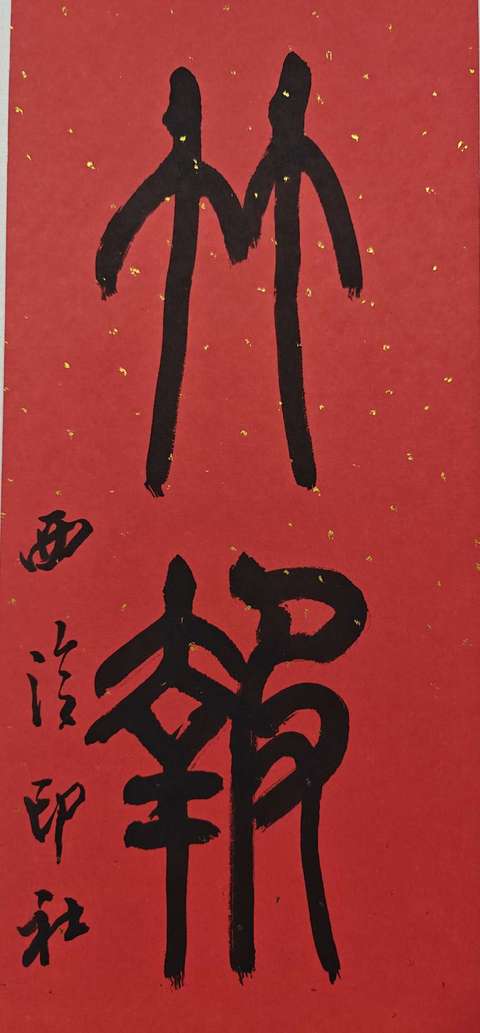 竹報
西泠印社